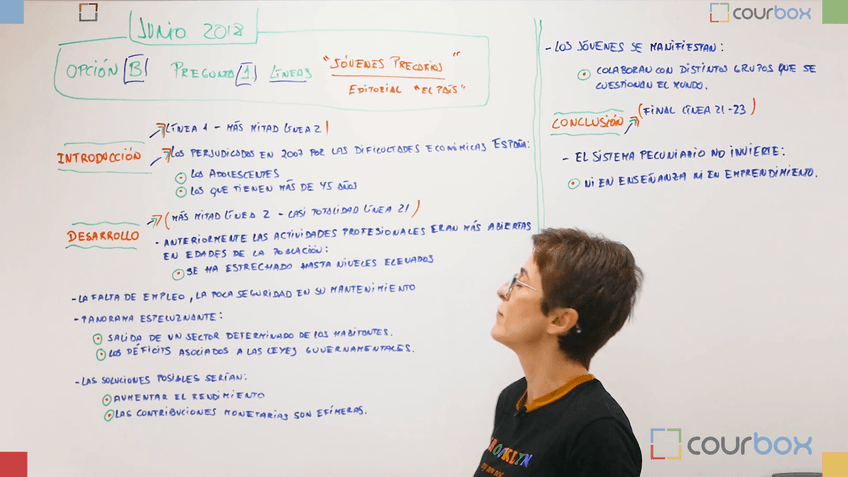 JUNIO 2018
OPCIÓN B PREGUNTA 1 LÍNEAS "JÓVENES PRECARIOS"
EDITORIAL "EL PAÍS"
INTRODUCCIÓN
LÍNEA 1 - MÁS MITAD LÍNEA 2)
LOS PERJUDICADOS EN 2007 POR LAS DIFICULTADES ECONÓMICAS ESPAÑA:
LOS ADOLESCENTES
LOS QUE TIENEN MÁS DE 45 AÑOS
DESARROLLO
(MÁS MITAD LÍNEA 2 - CASI TOTALIDAD LÍNEA 21)
- ANTERIORMENTE LAS ACTIVIDADES PROFESIONALES ERAN MÁS ABIERTAS
EN EDADES DE LA POBLACIÓN:
SE HA ESTRECHADO HASTA NIVELES ELEVADOS
- LA FALTA DE EMPLEO, LA POCA SEGURIDAD EN SU MANTENIMIENTO
- PANORAMA ESPELUZNANTE:
SALIDA DE UN SECTOR DETERMINADO DE LOS HABITANTES.
LOS DÉFICITS ASOCIADOS A LAS LEYES GUVERNAMENTALES.
- LAS SOLUCIONES POSIBLES SERÍAN:
AUMENTAR EL RENDIMIENTO
LAS CONTRIBUCIONES MONETARIAS SON EFÍMERAS.
- LOS JÓVENES SE MANIFIESTAN:
COLABORAN CON DISTINTOS GRUPOS QUE SE
CUESTIONAN EL MUNDO.
CONCLUSIÓN
(FINAL LÍNEA 21-23)
- EL SISTEMA PECUNIARIO NO INVIERTE:
NI EN ENSEÑANZA NI EN EMPRENDIMIENTO.
courbox
BROOKLYN
courbox